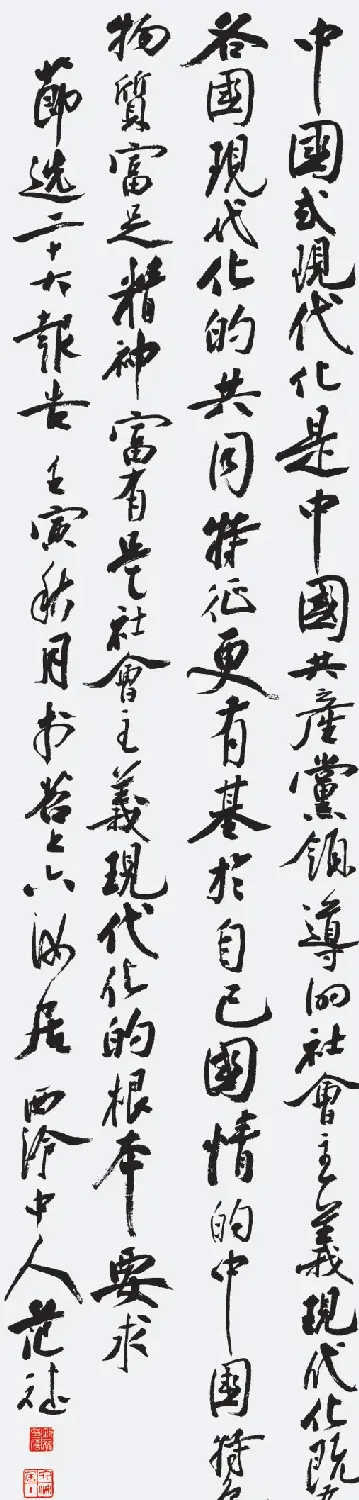 中國式現代化是中國共產黨領導的社會主義現代化既
各國現代化的共同特征更有基於自己國情的中國特色
物質富足精神富有是社會主義現代化的根本要求
節选二十大報告 壬寅秋月於苕上 居 西泠中人 范